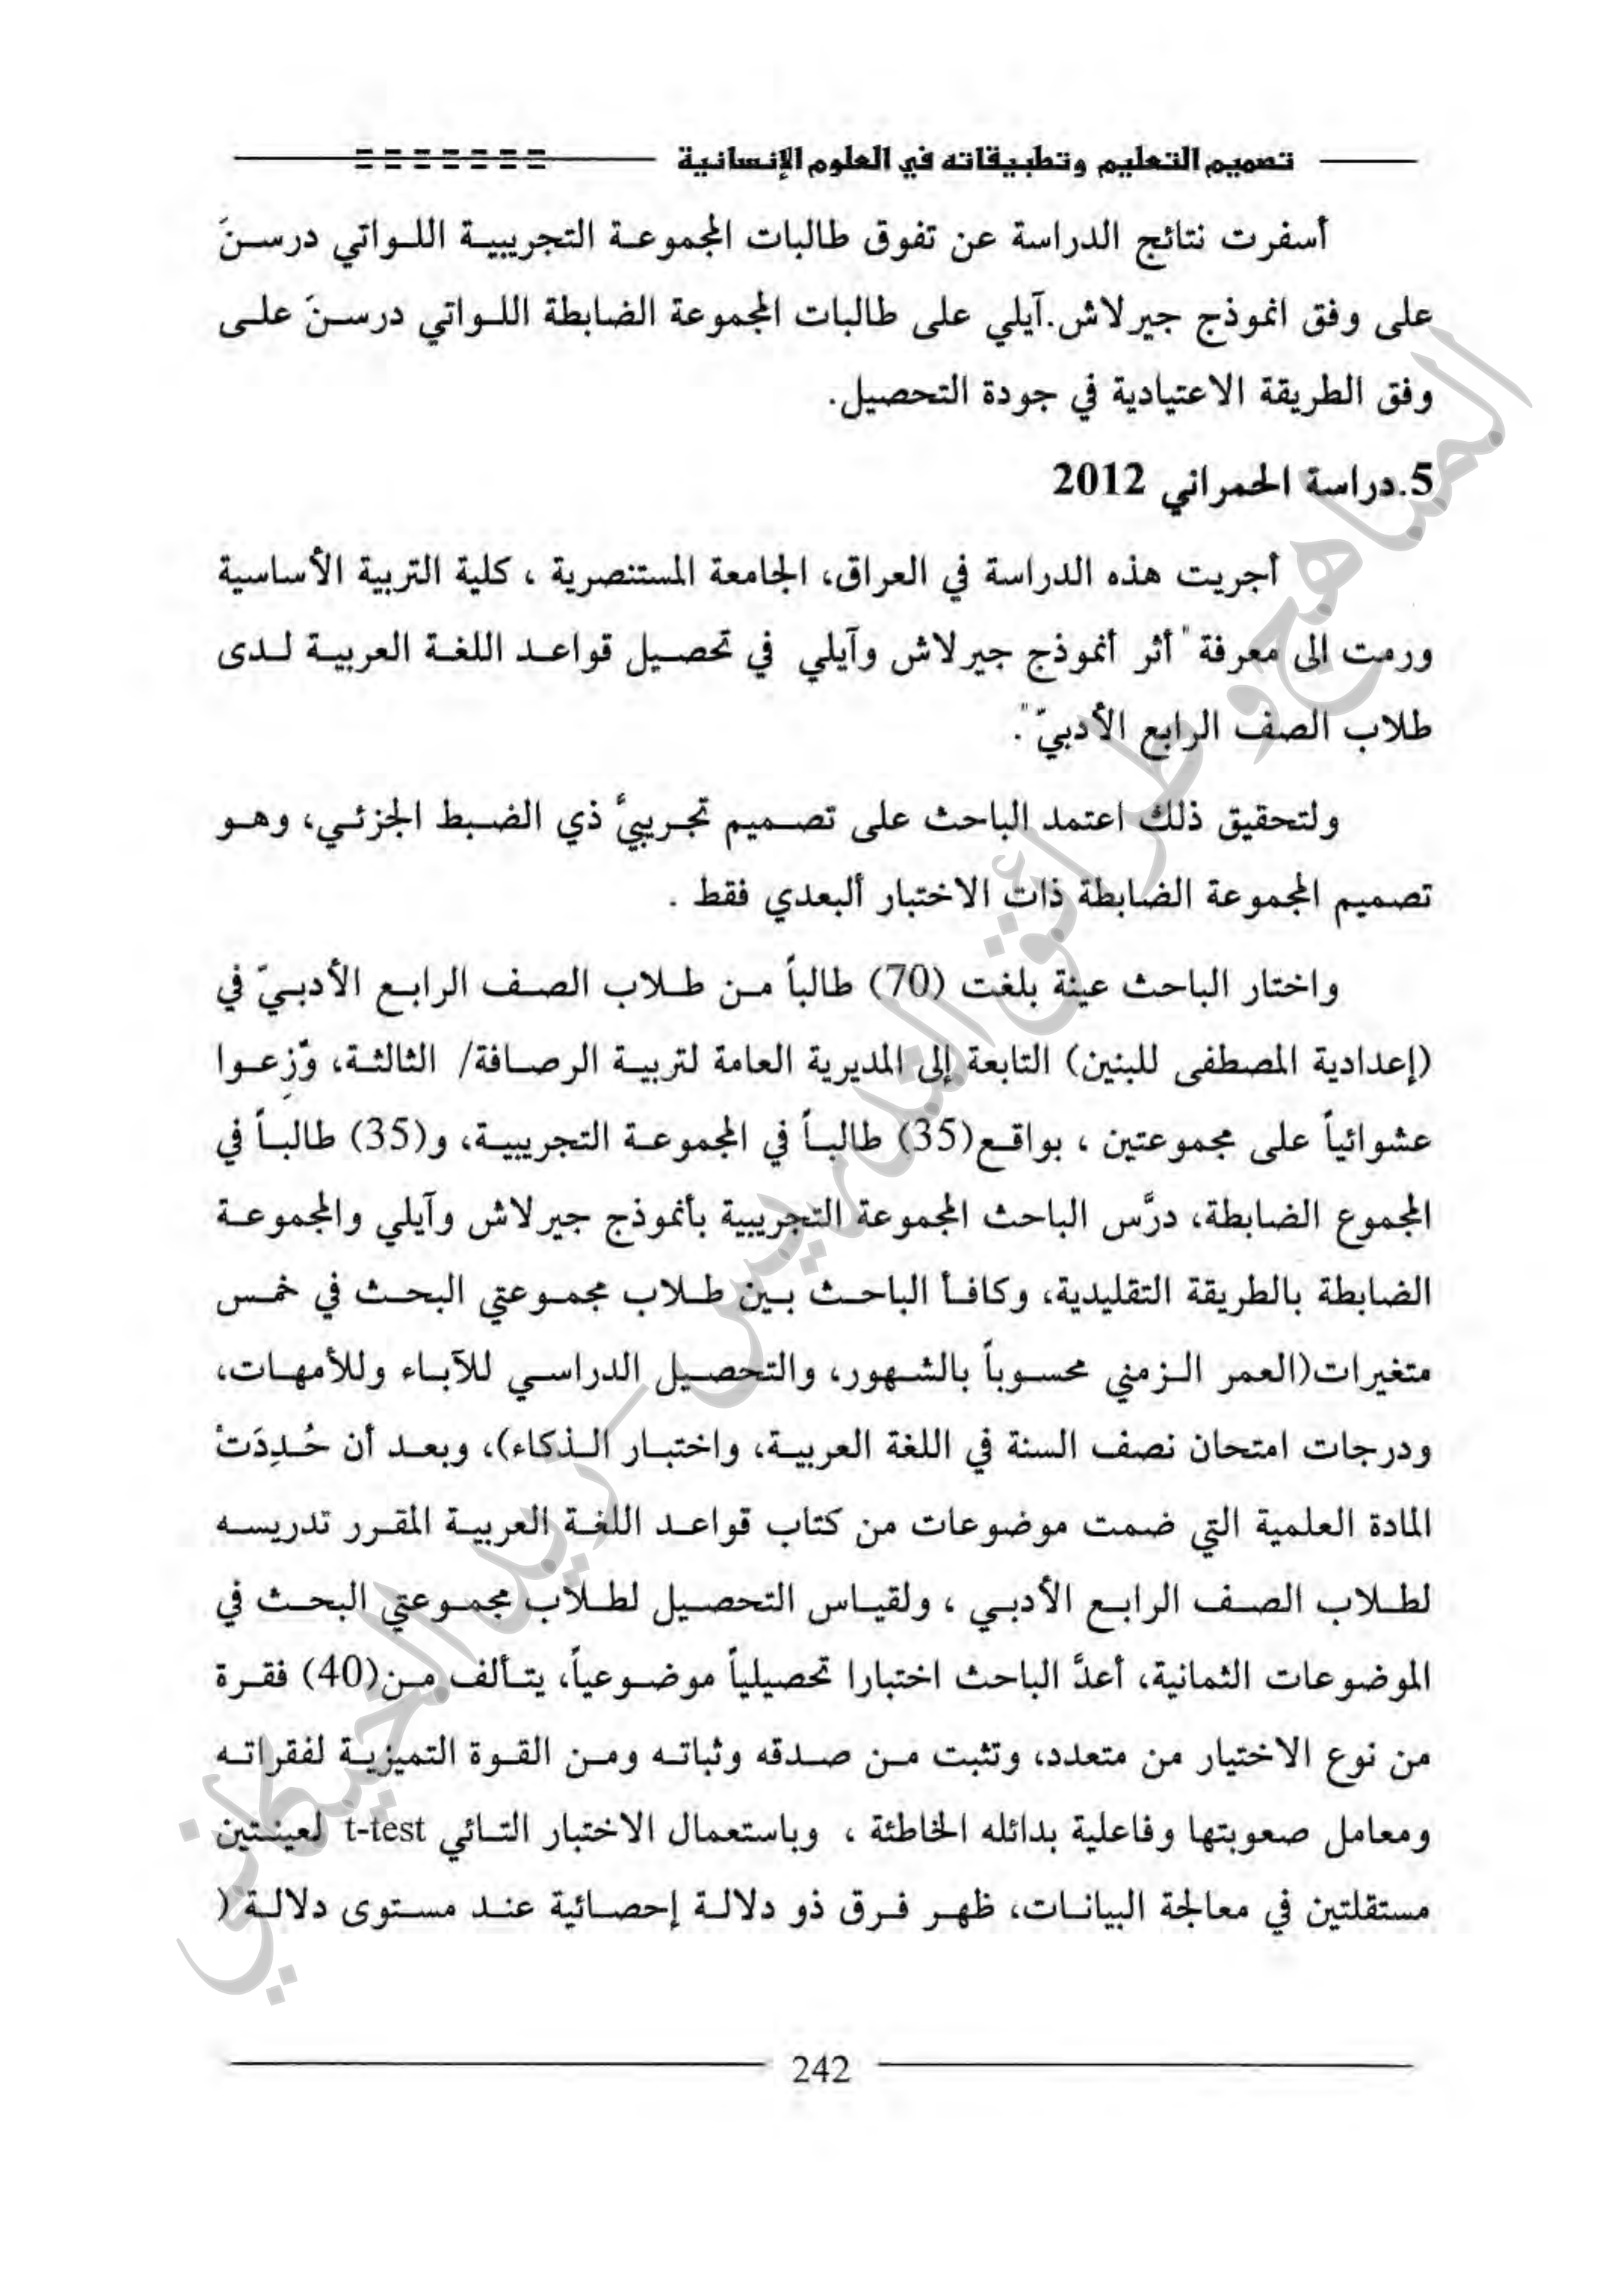 تصميم التعليم وتطبيقاته في العلوم الإنسانية
أسفرت نتائج الدراسة عن تفوق طالبات المجموعة التجريبية اللواتي درسنَ
على وفق انموذج جيرلاش.آيلي على طالبات المجموعة الضابطة اللواتي درسنَ على
وفق الطريقة الاعتيادية في جودة التحصيل.
5.دراسة الحمراني 2012
أجريت هذه الدراسة في العراق، الجامعة المستنصرية ، كلية التربية الأساسية
ورمت الى معرفة "أثر أنموذج جيرلاش وآيلي في تحصيل قواعد اللغة العربية لدى
طلاب الصف الرابع الأدبيّ".
ولتحقيق ذلك اعتمد الباحث على تصميم تجريبيًّ ذي الضبط الجزئي، وهو
تصميم المجموعة الضابطة ذات الاختبار ألبعدي فقط .
واختار الباحث عينة بلغت (70) طالباً من طلاب الصف الرابع الأدبيّ في
(إعدادية المصطفى للبنين) التابعة إلى المديرية العامة لتربية الرصافة/ الثالثة، وّزِعوا
عشوائياً على مجموعتين ، بواقع(35) طالباً في المجموعة التجريبية، و(35) طالباً في
المجموع الضابطة، درَّس الباحث المجموعة التجريبية بأنموذج جيرلاش وآيلي والمجموعة
الضابطة بالطريقة التقليدية، وكافأ الباحث بين طلاب مجموعتي البحث في خمس
متغيرات(العمر الزمني محسوباً بالشهور، والتحصيل الدراسي للآباء وللأمهات،
ودرجات امتحان نصف السنة في اللغة العربية، واختبار الذكاء)، وبعد أن حُدِدَتْ
المادة العلمية التي ضمت موضوعات من كتاب قواعد اللغة العربية المقرر تدريسه
لطلاب الصف الرابع الأدبي ، ولقياس التحصيل لطلاب مجموعتي البحث في
الموضوعات الثمانية، أعدَّ الباحث اختبارا تحصيلياً موضوعياً، يتألف من(40) فقرة
من نوع الاختيار من متعدد، وتثبت من صدقه وثباته ومن القوة التميزية لفقراته
ومعامل صعوبتها وفاعلية بدائله الخاطئة ، وباستعمال الاختبار التائي t-test لعينتين
مستقلتين في معالجة البيانات، ظهر فرق ذو دلالة إحصائية عند مستوى دلالة (
242
المناهج وطرائق التدريس - رند الحيكاني